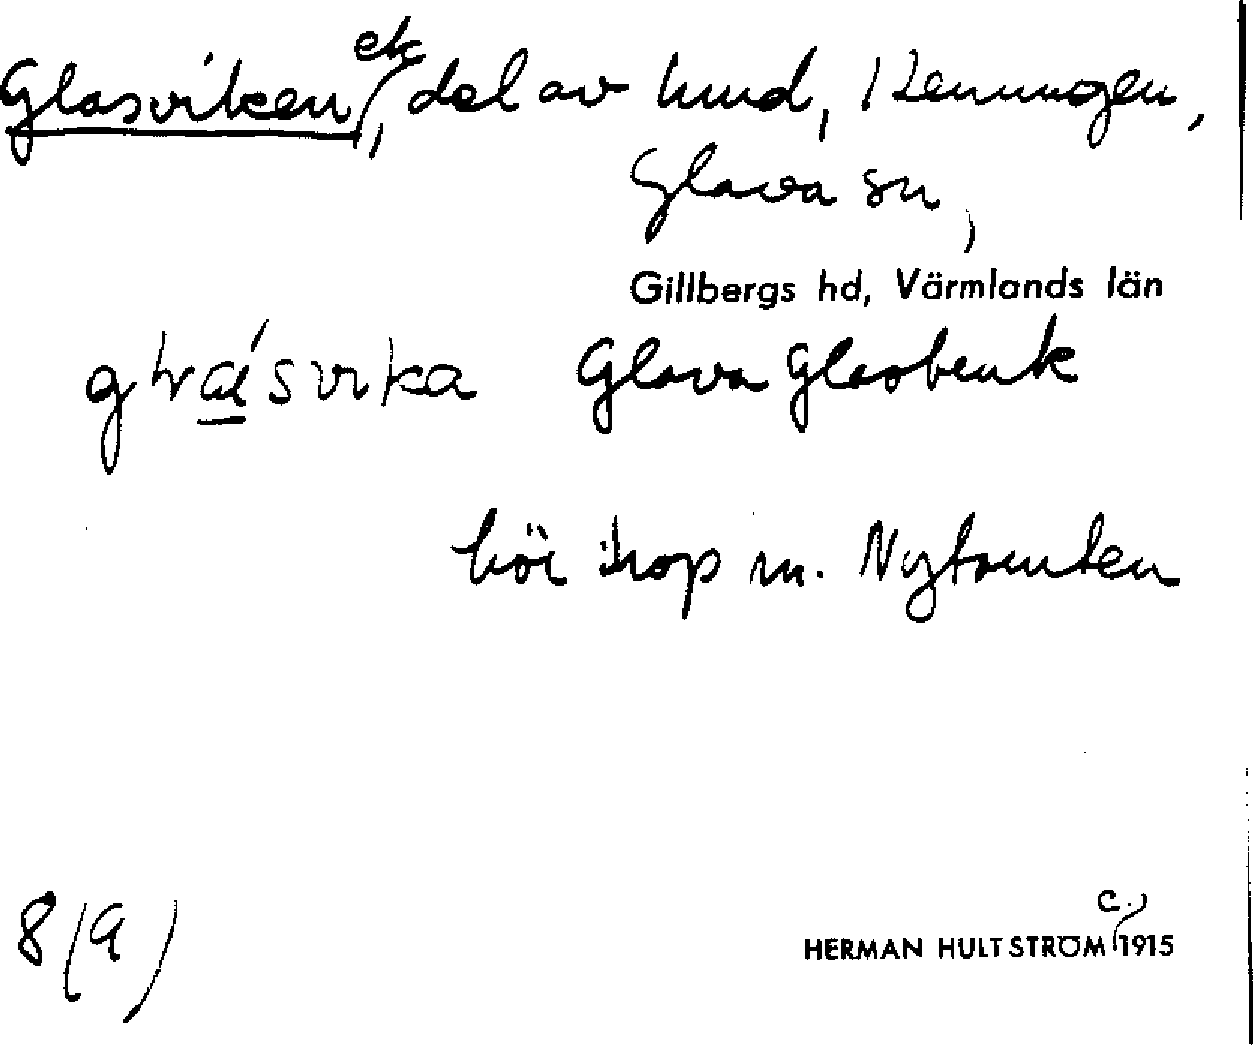 Glasviken, ek, del av hmd, Kenungen,
Glava sn,
Gillbergs hd, Värmlands län
Glava Glasbruk
hör ihop m. Nytomten
8 (9)
HERMAN HULTSTRÖM c. 1915